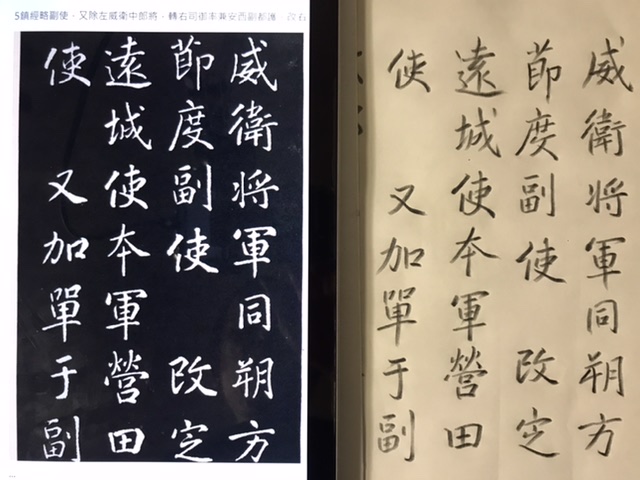 5鎮經略副使，又除左威衛中郎將，轉右司御率兼安西副都護，改右
威衛将軍同朔方
節度副使 改定
遠城使本軍營田
使 又加單于副
威衛将軍同朔方
節度副使 改定
遠城使本軍營田
使 又加單于副